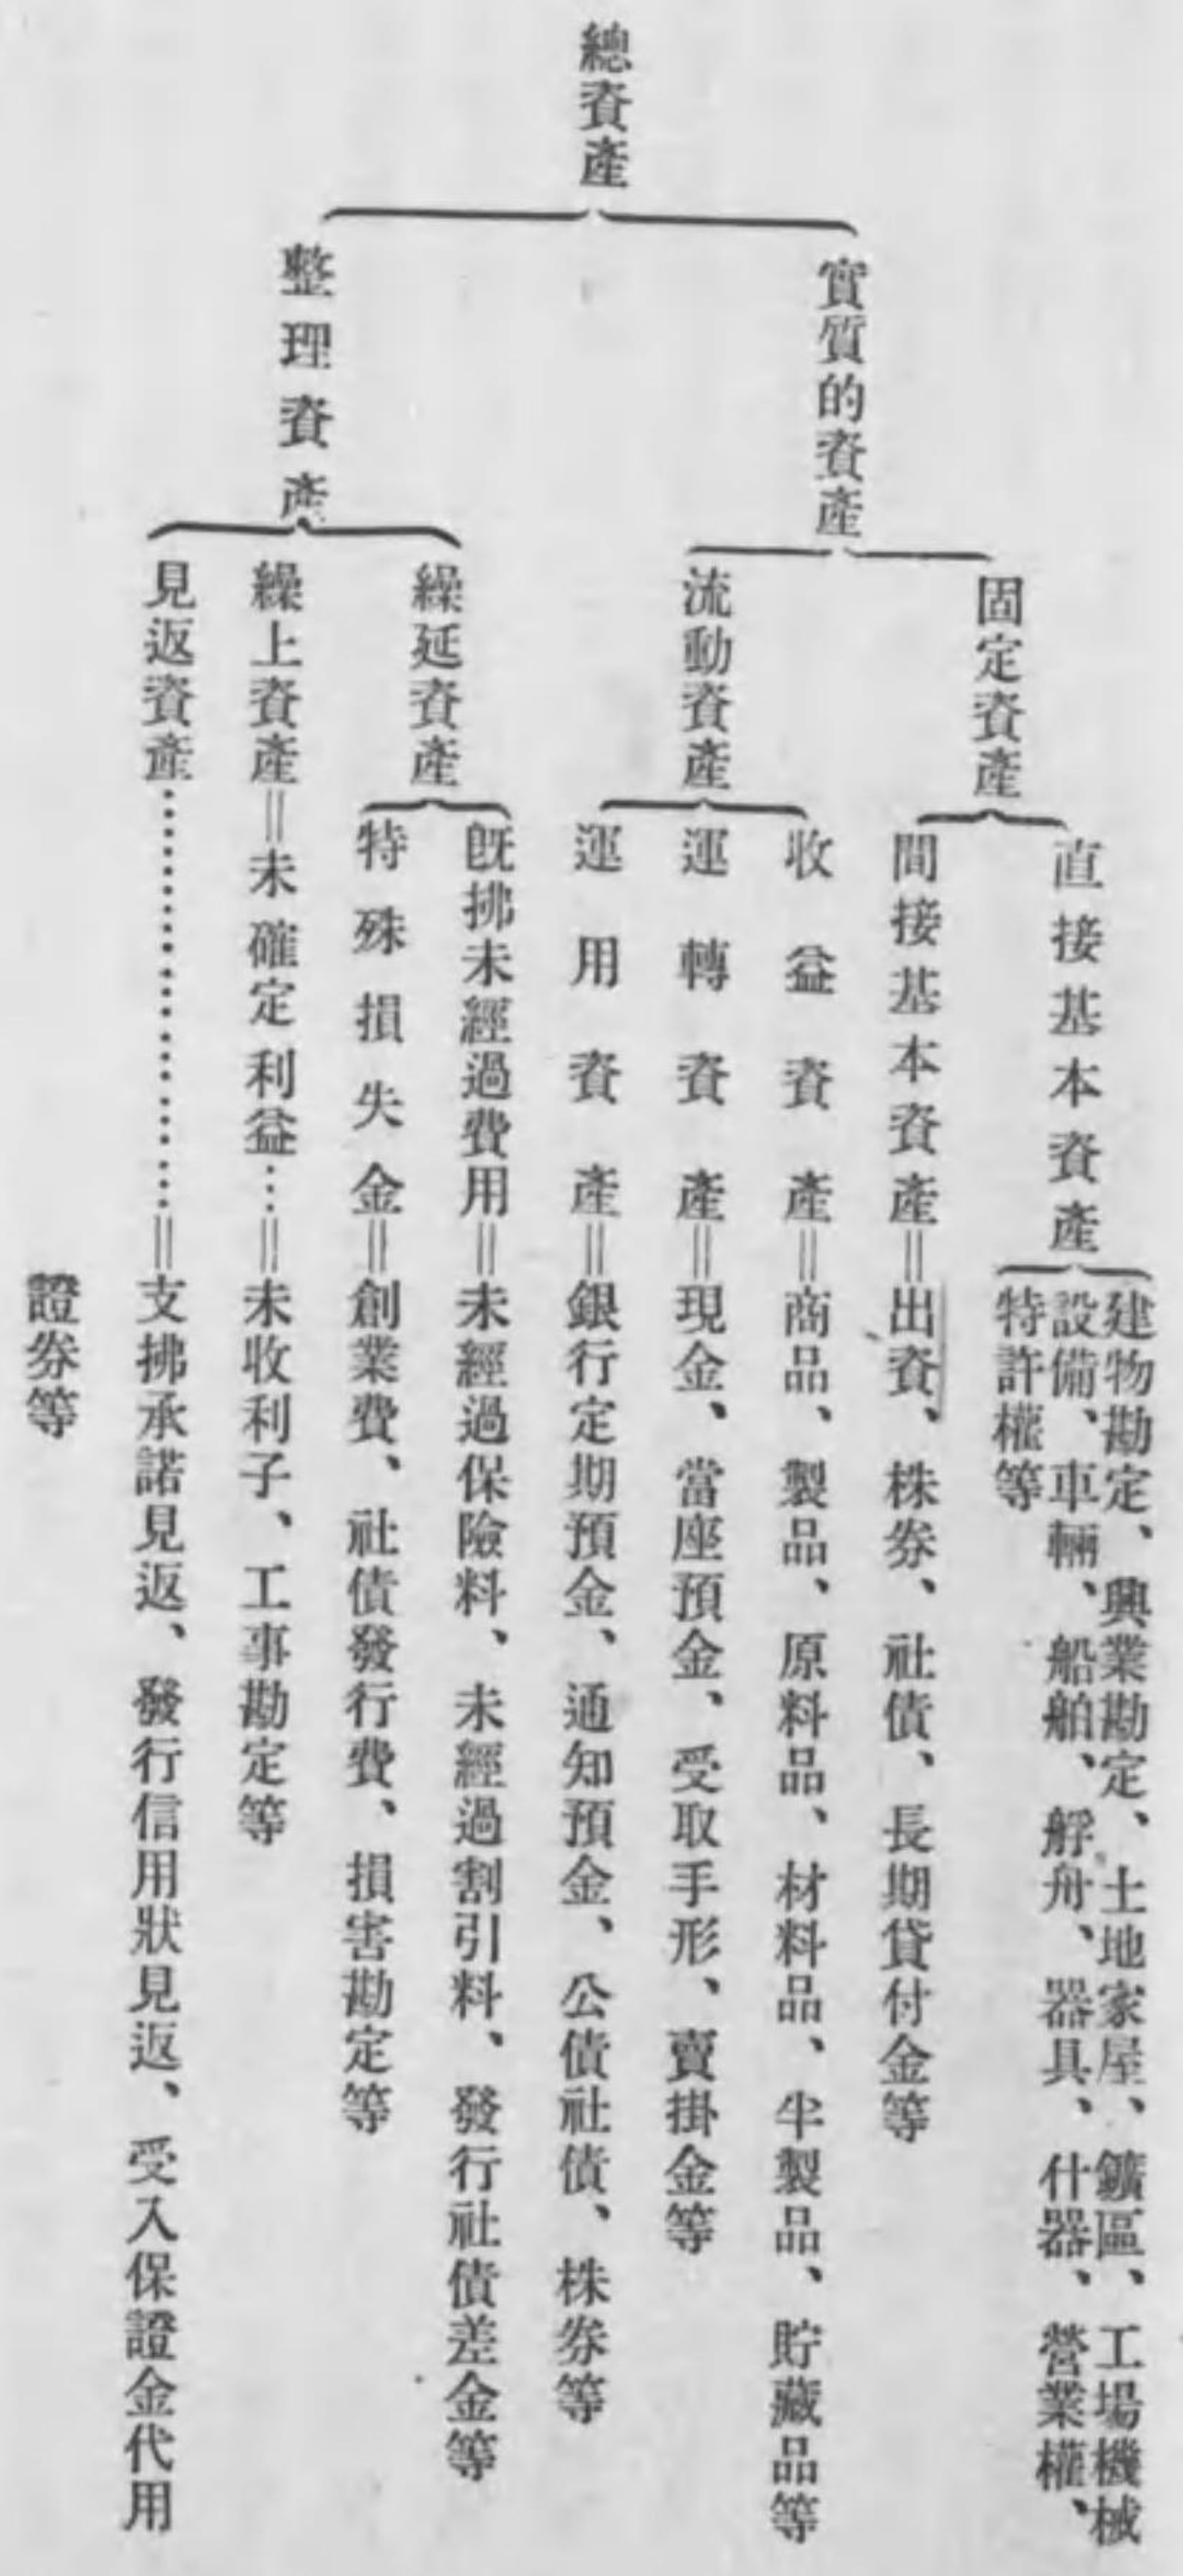 總資產
實質的資產
固定資產
直接基本資產
建物勘定、興業勘定、土地家屋、鑛區、工場機械
設備、車輛、船舶、艀舟、器具、什器、營業權、
特許權等
間接基本資產＝出資、株券、社債、長期貸付金等
流動資產
收益資產＝商品、製品、原料品、材料品、半製品、貯藏品等
運轉資產＝現金、當座預金、受取手形、賣掛金等
運用資產＝銀行定期預金、通知預金、公債社債、株券等
整理資產
繰延資產
既拂未經過費用＝未經過保險料、未經過割引料、發行社債差金等
特殊損失金＝創業費、社債發行費、損害勘定等
繰上資產＝未確定利益…＝未收利子、工事勘定等
見返資產……………………＝支拂承諾見返、發行信用狀見返、受入保證金代用
證券等